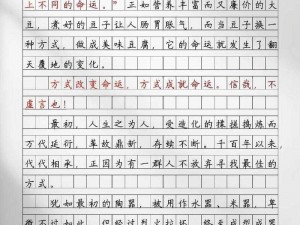 上不同的命运。”正如营养丰富而又廉价的大
豆，煮好的豆子让人肠胃胀气，而当豆子换一
种方式，做成美味豆腐，它的命运就发生了翻
天覆地的变化。
方式改变命运，方式成就命运。信哉，不
虚言也！
最初，人生之为人，受造化的揉搓捣炼而
万代运衍，革故鼎新，存续不断。千百年以来
代代相承，正因为有一群人不放弃寻找最佳的
方式。
犹如最初的陶器，被用作水器、米器，卑
微不过如此，但经过烈火拉坯，终